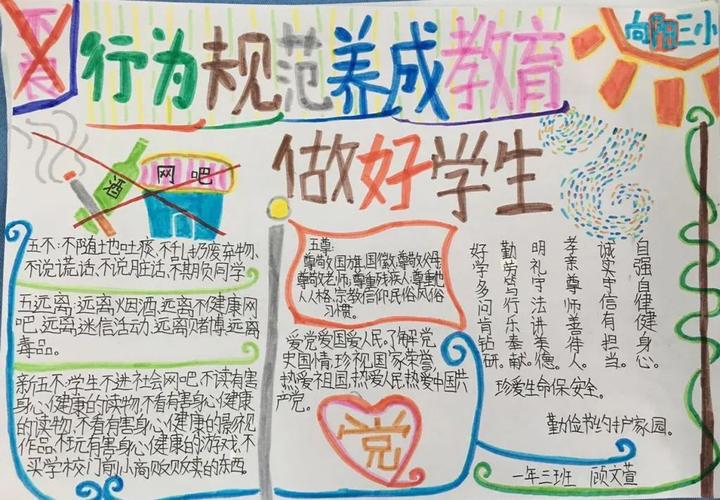 不良
行为规范养成教育
向阳三小
做好学生
酒
网吧
五不:不随地吐痰,不乱扔废弃物,
不说谎话,不说脏话,不期负同学
五远离:远离烟酒,远离不健康网
吧,远离迷信活动,远离赌博,远离
毒品。
新五不:学生不进社会网吧,不读有害
身心健康的读物,不看有害身心健康
的读物,不看有害身心健康的影视
作品,不玩有害身心健康的游戏,不
买学校门前小商贩贩卖的东西。
五尊:
尊敬国旗、国徽,尊敬父母,
尊敬老师,尊重残疾人,尊重他
人人格、宗教信仰、民俗风俗
习惯。
爱党爱国爱人民,了解党
史国情,珍视国家荣誉,
热爱祖国,热爱人民,热爱中国共
产党。
党
自强自健健身心。
诚实守信有担当。
孝亲尊师善待人。
明礼守法讲美德。
勤劳笃行乐奉献。
好学多问肯钻研。
珍爱生命保安全。
勤俭节约护家园。
一年三班 顾文萱